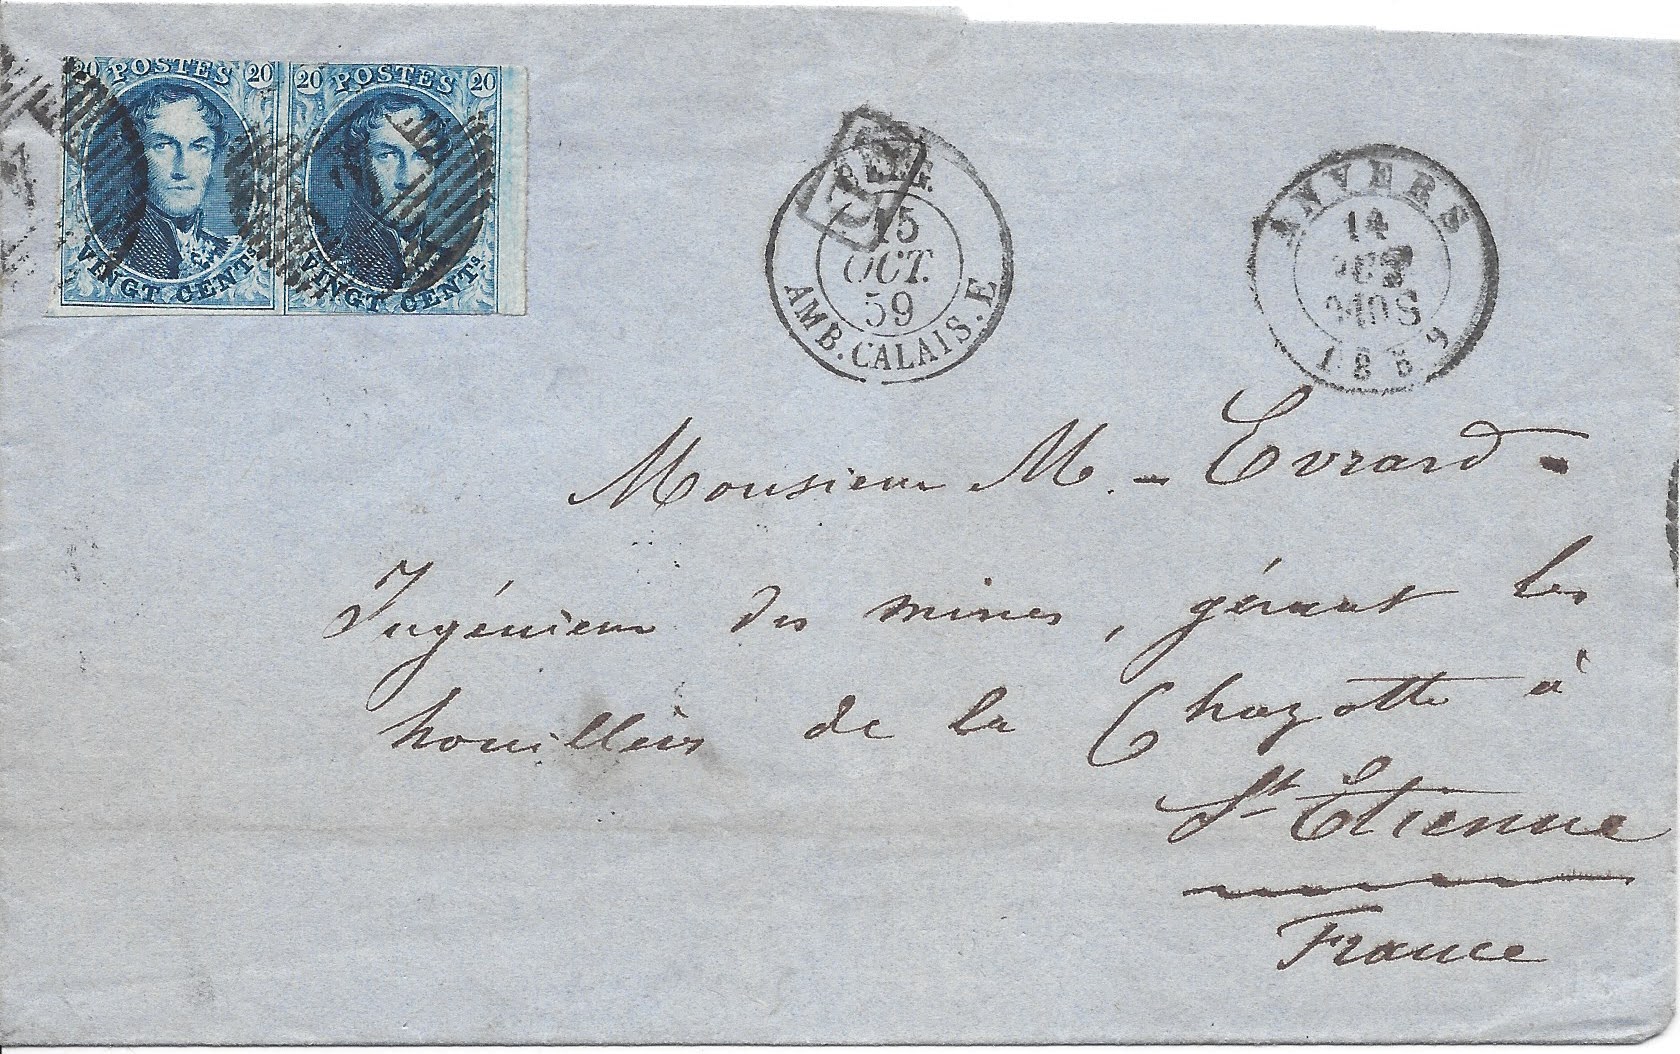 20 POSTES 20
VINGT CENTS.
20 POSTES 20
VINGT CENTS.
PD
BELG.
15
OCT.
59
AMB. CALAIS. E
ANVERS
14
OCT
10S
1859
Monsieur M. - Evrard -
Ingénieur des mines, gérant les
houillères de la Chazotte à
St Etienne
France